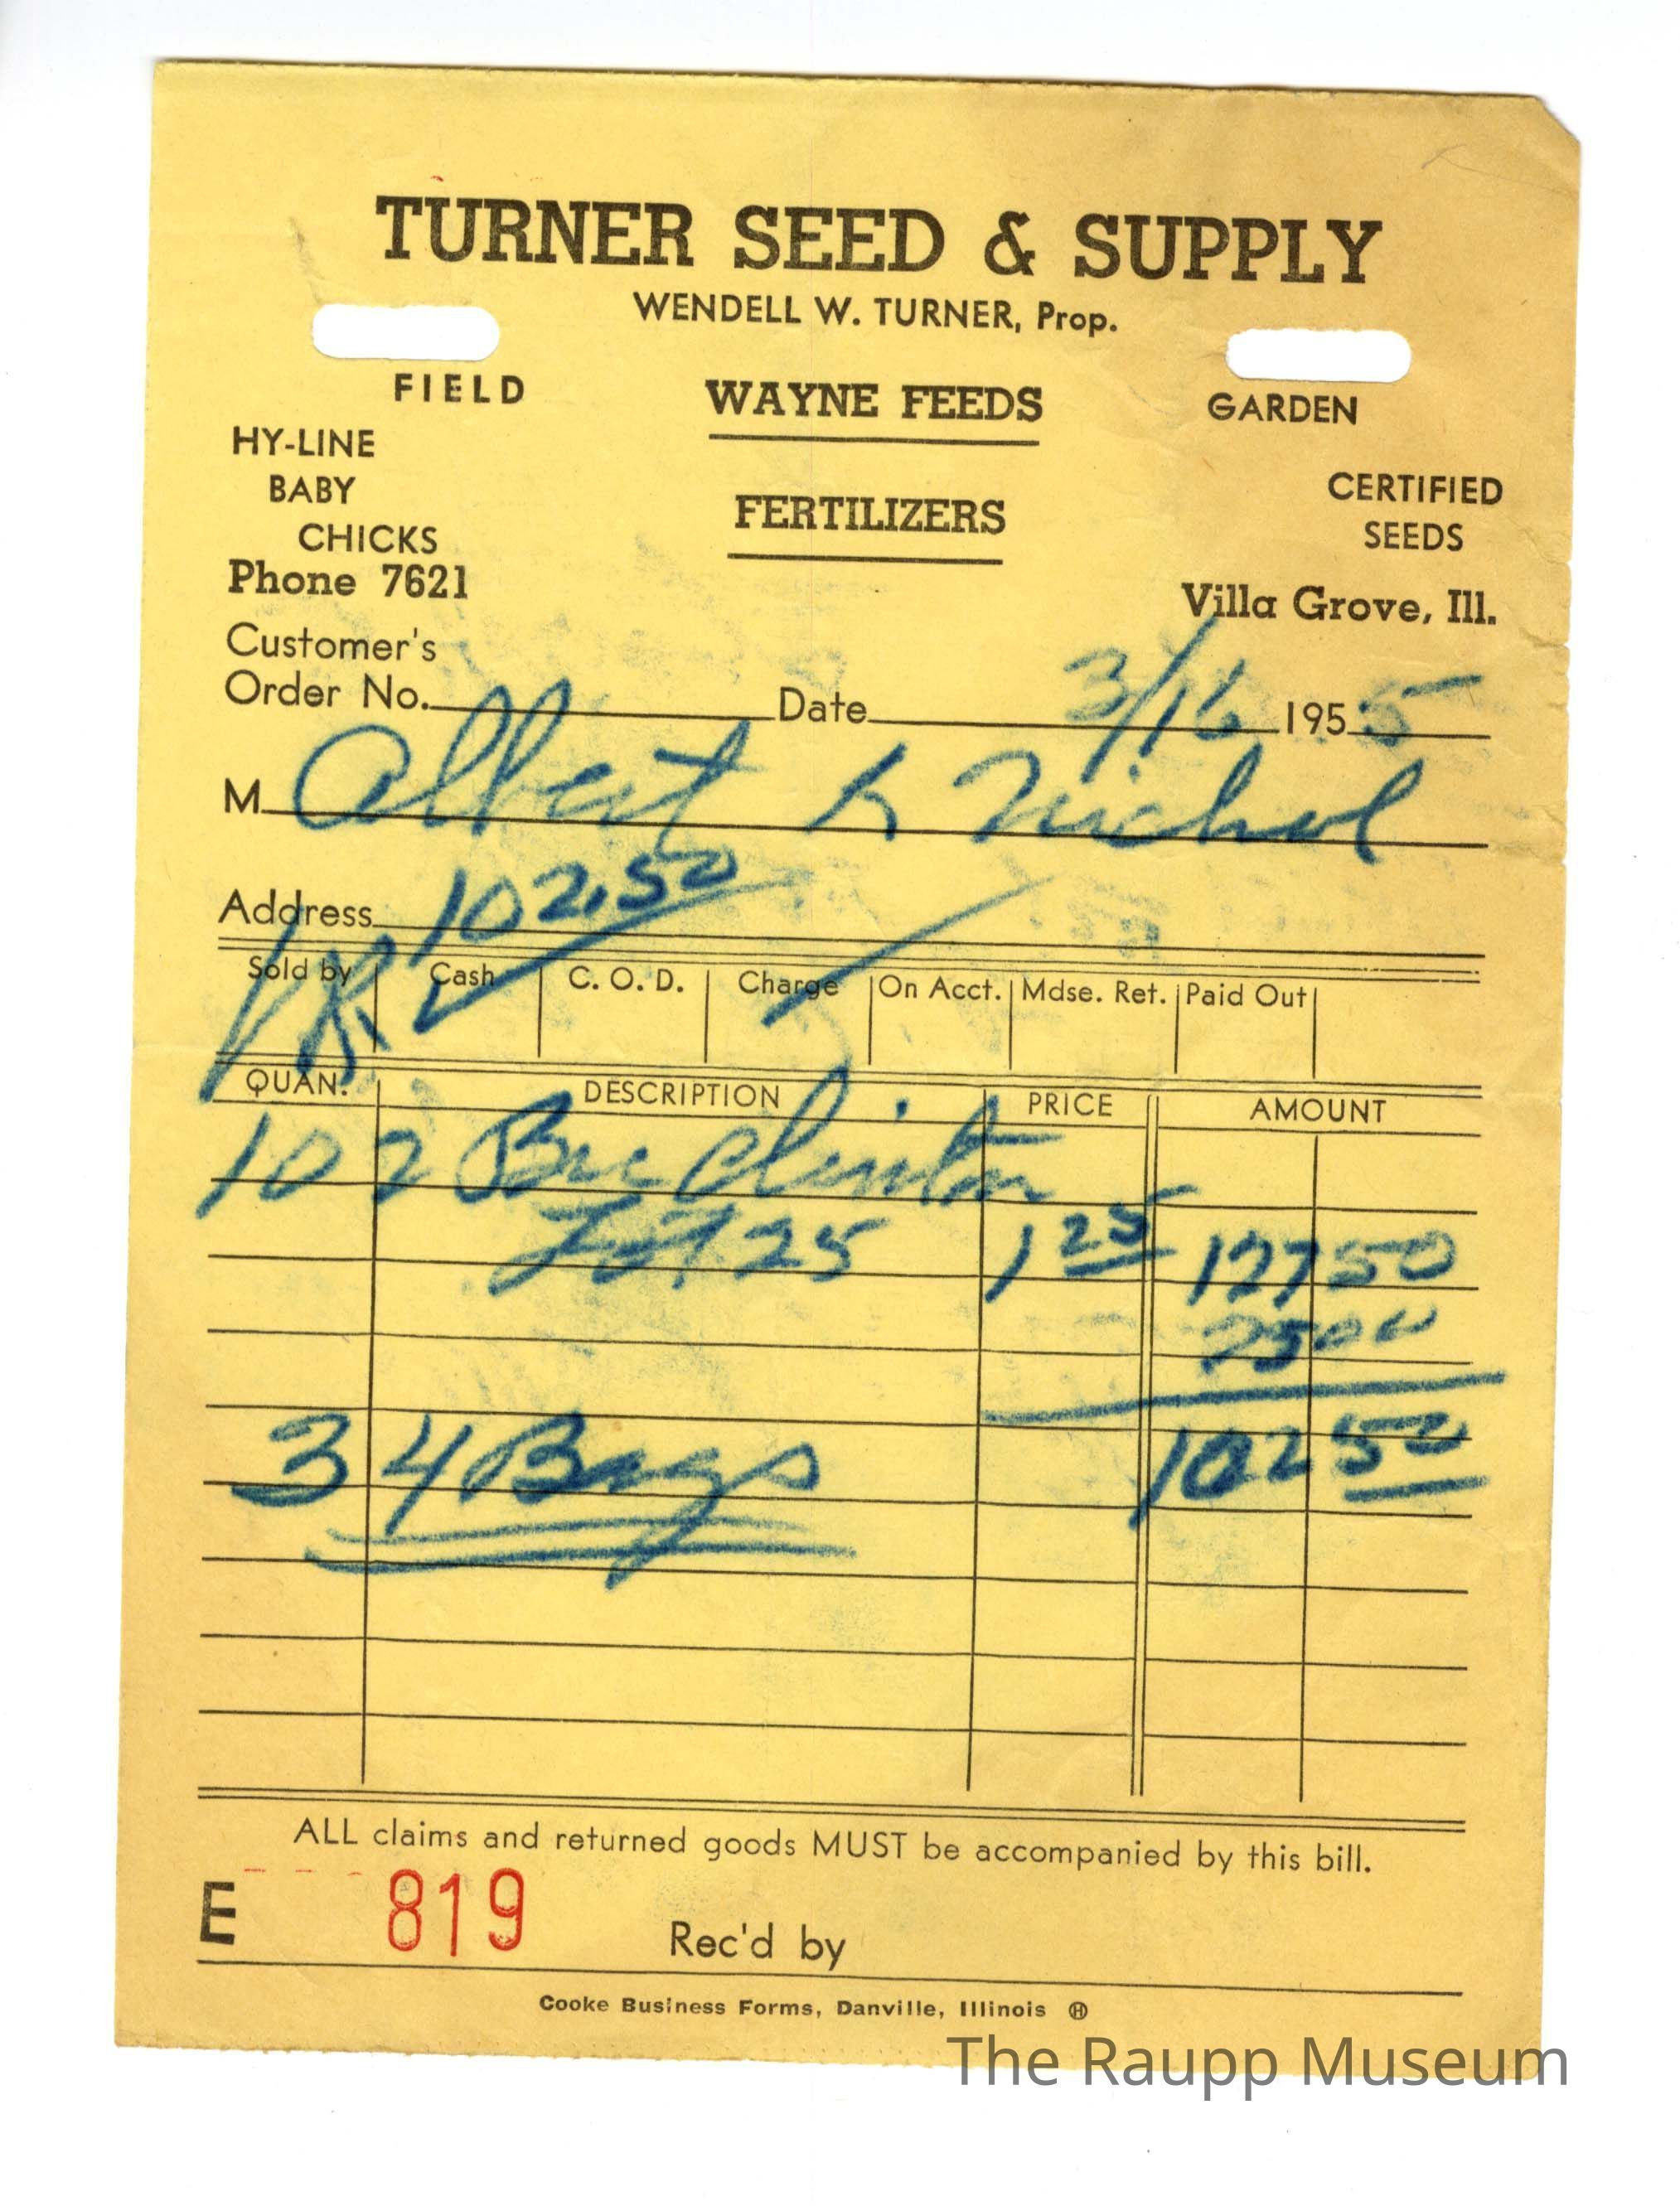 TURNER SEED & SUPPLY
WENDELL W. TURNER, Prop.
FIELD WAYNE FEEDS GARDEN
HY-LINE
BABY
CHICKS
FERTILIZERS
CERTIFIED
SEEDS
Phone 7621
Villa Grove, Ill.
Customer's
Order No. Date 3/16 1955
M Albert Nichol
Address 102.50
Sold by Cash C. O. D. Charge On Acct. Mdse. Ret. Paid Out
QUAN. DESCRIPTION PRICE AMOUNT
102 Bu Clinton
Lot 25 1 25 127 50
25 00
34 Bags 102 50
ALL claims and returned goods MUST be accompanied by this bill.
E 819 Rec'd by
Cooke Business Forms, Danville, Illinois Ⓗ
The Raupp Museum